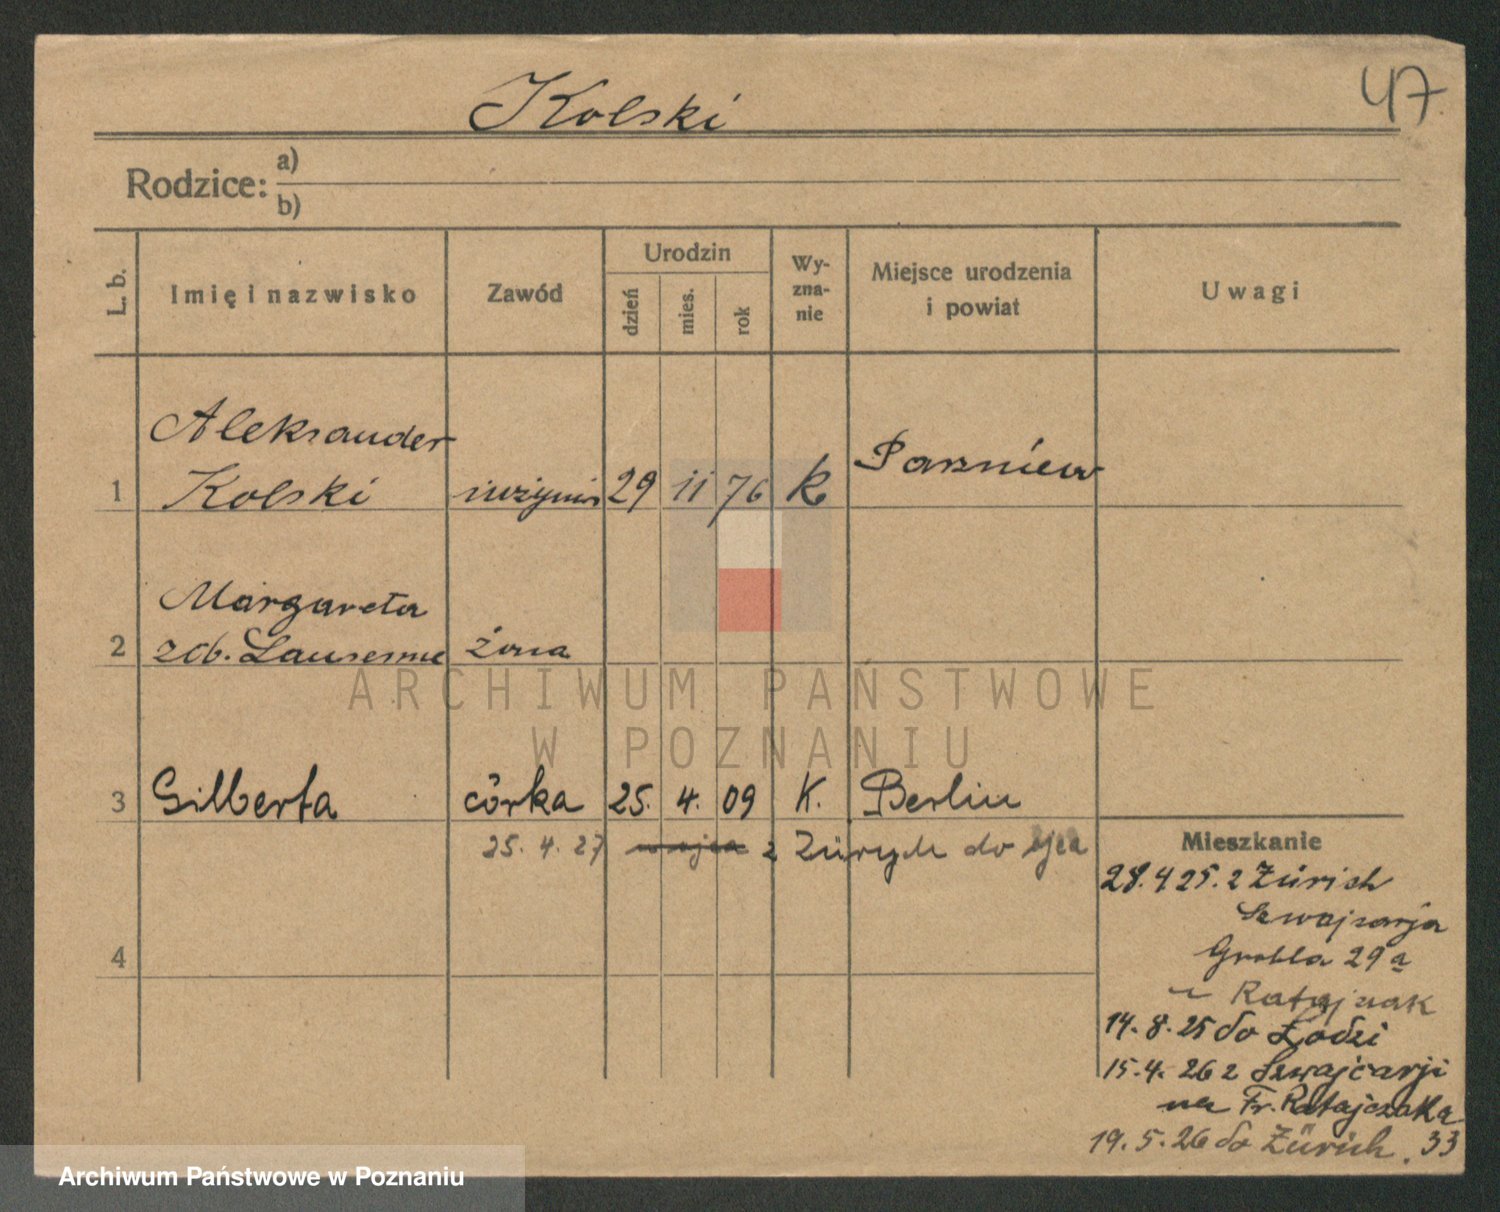 47
Kolski
Rodzice: a)
b)
L. b.
Imię i nazwisko
Zawód
Urodzin
dzień
mies.
rok
Wy-
zna-
nie
Miejsce urodzenia
i powiat
Uwagi
Aleksander
1 Kolski inżynier 29 11 76 k
Margareta
2 zd. żona
3 Gilberta córka 25. 4. 09 K. Berlin
25. 4. 27 z Zürych do
4
Mieszkanie
28.4 25. z Zürich
Szwajcarja
Grobla 29a
Ratajczak
14. 8. 25 do Łodzi
15. 4. 26 z Szwajcarji
na Fr. Ratajczaka
19. 5. 26 do Zürich. 33
ARCHIWUM PAŃSTWOWE
W POZNANIU
Archiwum Państwowe w Poznaniu